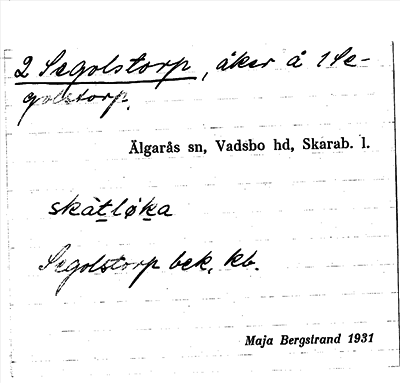 2 Segolstorp, åker å 1 Se-
golstorp.
Älgarås sn, Vadsbo hd, Skarab. l.
skàt̲løk̲a
Segolstorp bek. kb.
Maja Bergstrand 1931